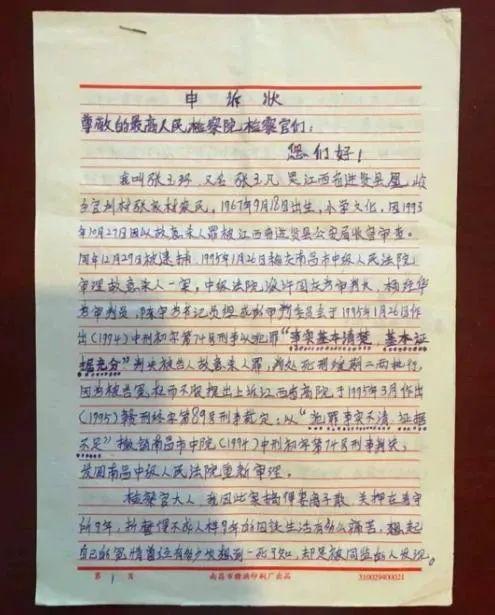 申诉状
尊敬的最高人民检察院检察官们:
您们好!
我叫张玉环 又名 张玉凡 是江西省进贤县凰岭
乡官圳村张家村农民,1967年9月18日出生,小学文化,因1993
年10月27日因以故意杀人罪被江西省进贤县公安局收容审查。
同年12月29日被逮捕,1995年1月26日被南昌市中级人民法院
审理故意杀人一案,中级法院 审判长,
为审判员, 书记员组成 于1995年1月26日作
出(1994)中刑初字第74号刑事以犯罪“事实基本清楚,基本证
据充分”判决被告人故意杀人罪,判处死刑缓期二年执行,
因为被告冤枉而不服提出上诉江西省高院于1995年3月作出
(1995)赣刑终字第89号刑事裁定:以“犯罪事实不清、证据
不足”撤销南昌市中院(1994)中刑初字第74号刑事判决,
发回南昌中级人民法院重新审理。
检察官大人,我因此案搞得妻离子散,关押在看守
所9年,折磨得不成人样9年的囚徒生活有多么痛苦,想起
自己的冤情曾经有多少次想到一死了知,却是被同监的人发现。
第 1 页 南昌市赣滨印刷厂出品 310029400021